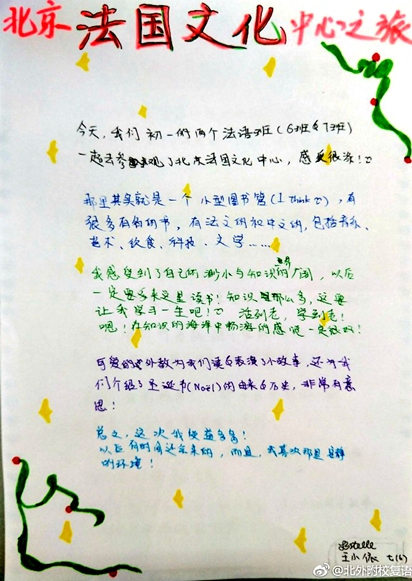 北京法国文化中心之旅
今天，我们初一的两个法语班（6班&7班）
一起去参观了北京法国文化中心，感受很深！
那里其实就是一个小型图书馆（I think），有
很多有趣的书，有法文的和中文的，包括音乐、
艺术、饮食、科技、文学……
我感受到了自己的渺小与知识的广阔，以后
一定要多来这里读书！知识那么多，这要
让我学习一生吧！活到老，学到老！
吧！在知识的海洋中畅游的感觉一定很好！
可爱的外教为我们读&表演了小故事，还为我
们介绍了圣诞节(Noël)的由来&历史，非常有意
思！
总之，这次我受益多多！
以后有时间还会来的，而且，我喜欢那里安静
的环境！
Estelle
王小 七(6)
@北外附校复语